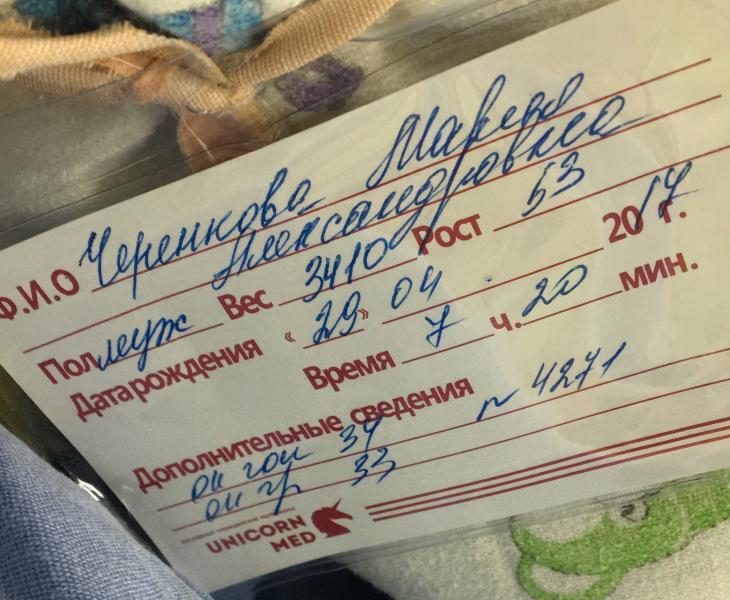 Ф.И.О Черенкова Мария
Александровна
Пол муж Вес 3410 Рост 53
Дата рождения « 29 » 04 2017 г.
Время 7 ч. 20 мин.
Дополнительные сведения № 4271
ок гол 34
ок гр 33
UNICORN
MED